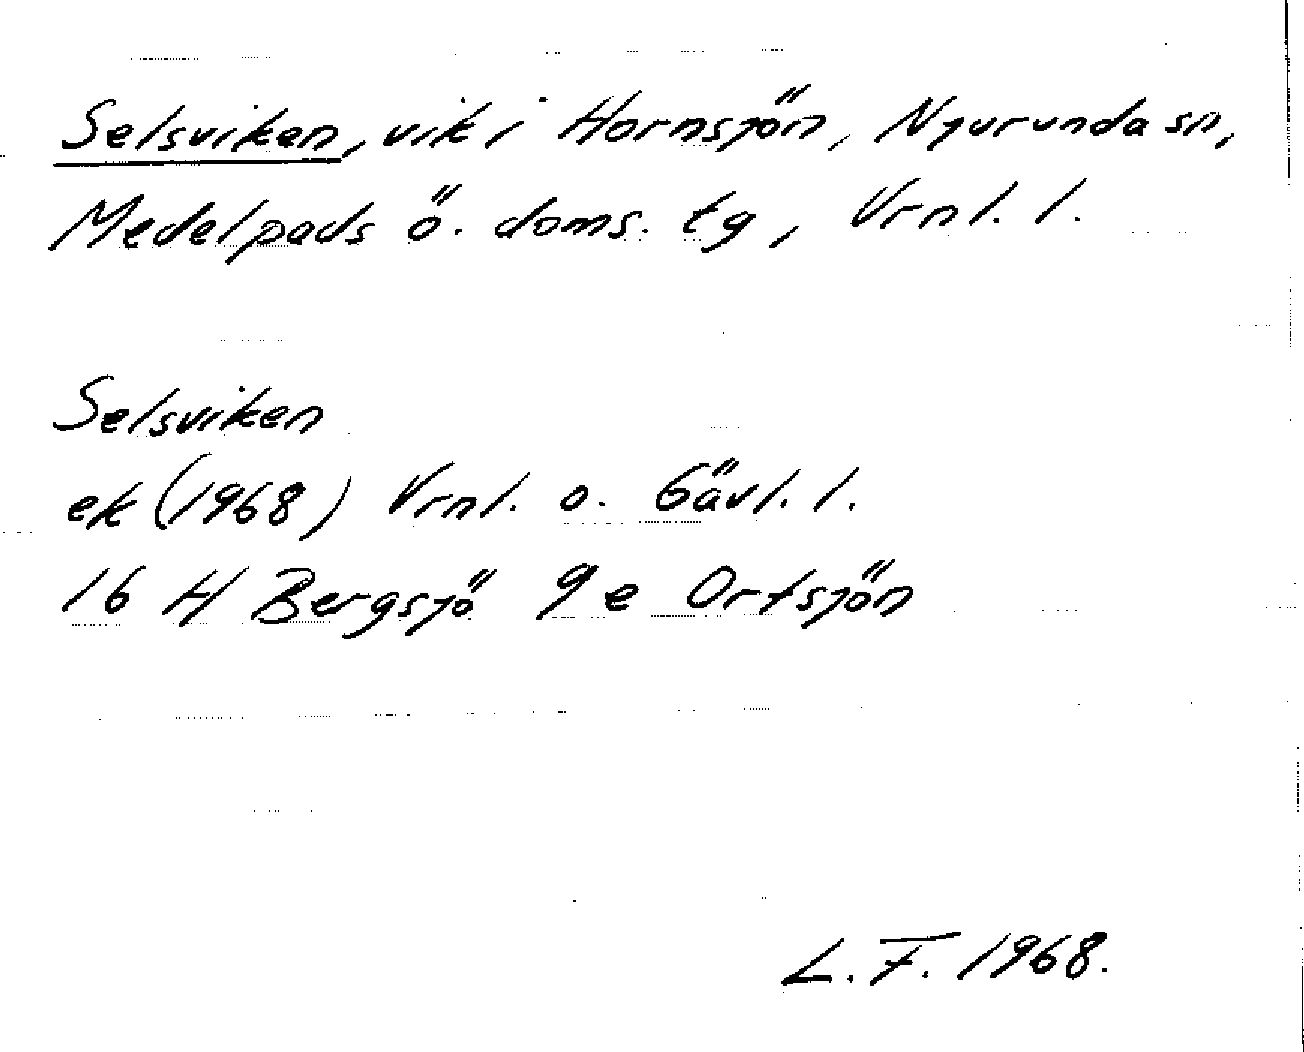 Selsviken, vik i Hornsjön, Njurunda sn,
Medelpads ö. doms. tg, Vrnl. l.
Selsviken
ek (1968) Vrnl. o. Gävl. l.
16 H Bergsjö 9e Ortsjön
L. F. 1968.